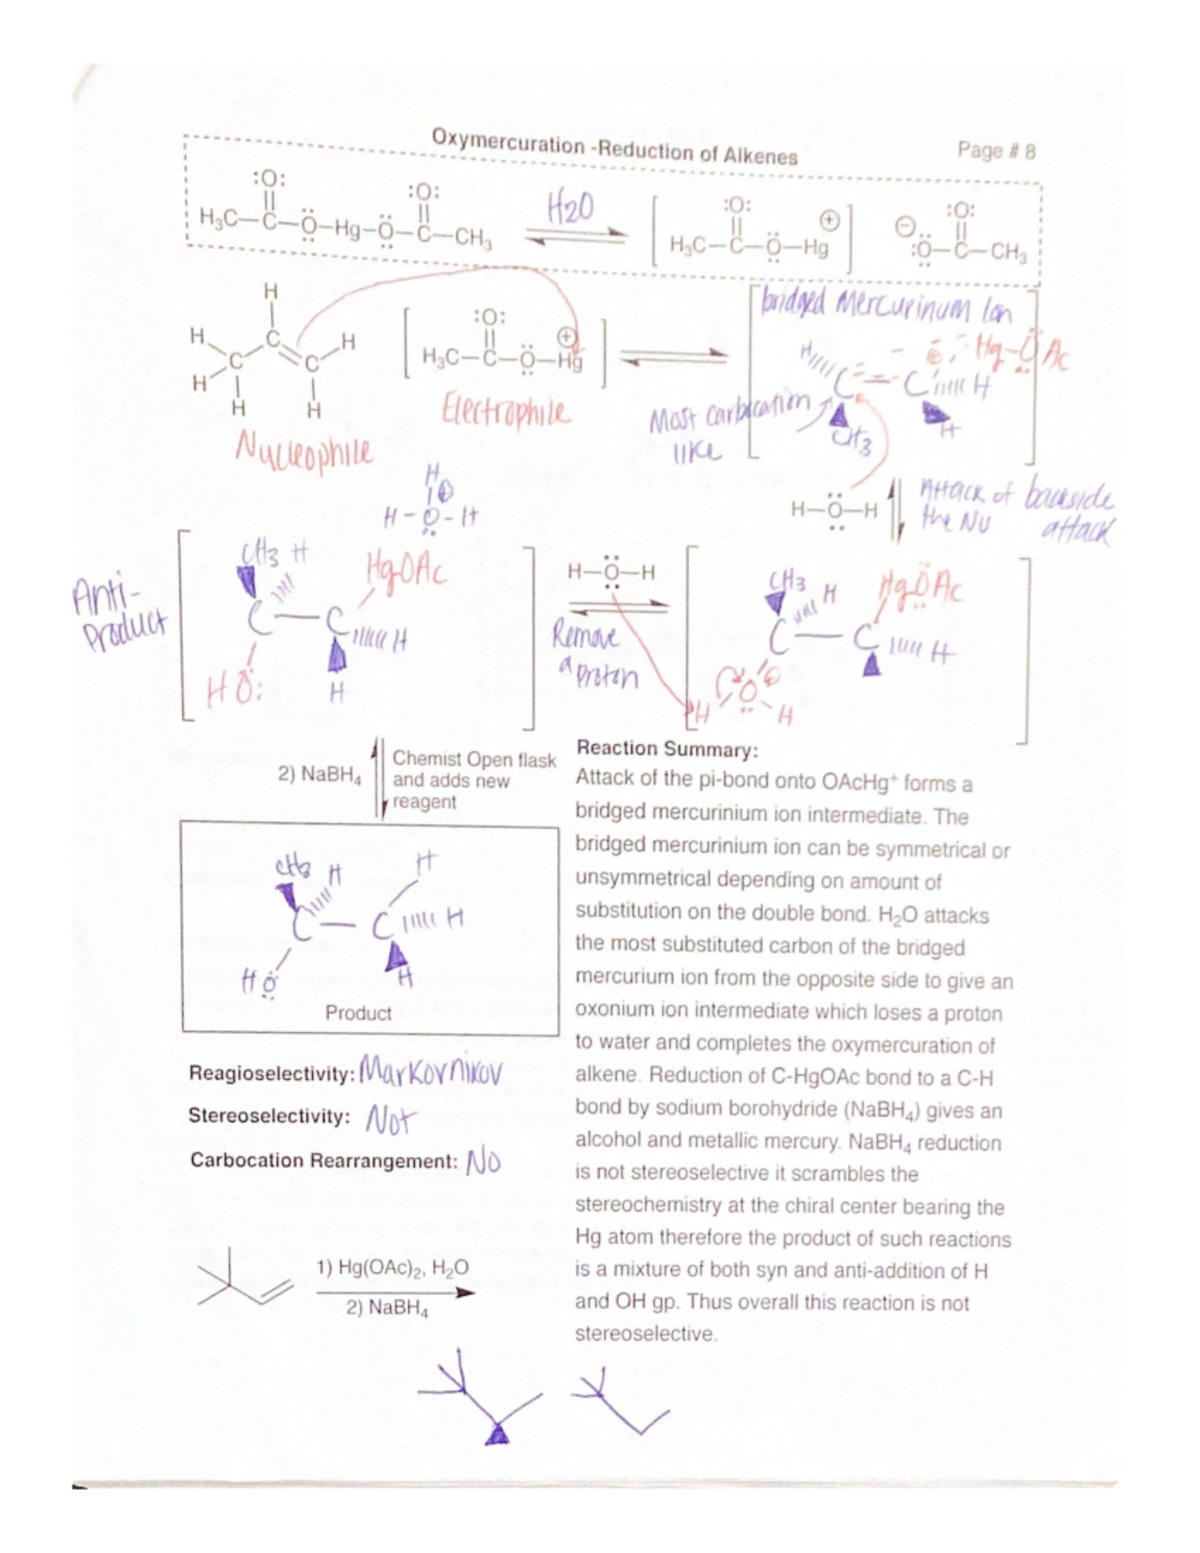 Oxymercuration -Reduction of Alkenes
Page # 8
:O: :O: H2O :O: ⊕ ⊖ :O:
H₃C–C–O–Hg–O–C–CH₃ H₃C–C–O–Hg :O–C–CH₃
bridged Mercurinum Ion
H
H C H :O: ⊕ H ⊕ Hg–OAc
C C H₃C–C–O–Hg C=C H
H H H
Electrophile
Most carbocation
like
CH3 H
Nucleophile
H
⊕
H-O-H
H–O–H
Attack of backside
the Nu attack
Anti-
Product
CH3 H HgOAc
C—C H
HO: H
H–O–H
Remove
a proton
CH3 H HgOAc
C—C H
⊕
H O H
2) NaBH₄
Chemist Open flask
and adds new
reagent
CH3 H H
C—C H
HO H
Product
Reagioselectivity: Markovnikov
Stereoselectivity: Not
Carbocation Rearrangement: No
1) Hg(OAc)₂, H₂O
2) NaBH₄
Reaction Summary:
Attack of the pi-bond onto OAcHg⁺ forms a
bridged mercurinium ion intermediate. The
bridged mercurinium ion can be symmetrical or
unsymmetrical depending on amount of
substitution on the double bond. H₂O attacks
the most substituted carbon of the bridged
mercurium ion from the opposite side to give an
oxonium ion intermediate which loses a proton
to water and completes the oxymercuration of
alkene. Reduction of C-HgOAc bond to a C-H
bond by sodium borohydride (NaBH₄) gives an
alcohol and metallic mercury. NaBH₄ reduction
is not stereoselective it scrambles the
stereochemistry at the chiral center bearing the
Hg atom therefore the product of such reactions
is a mixture of both syn and anti-addition of H
and OH gp. Thus overall this reaction is not
stereoselective.